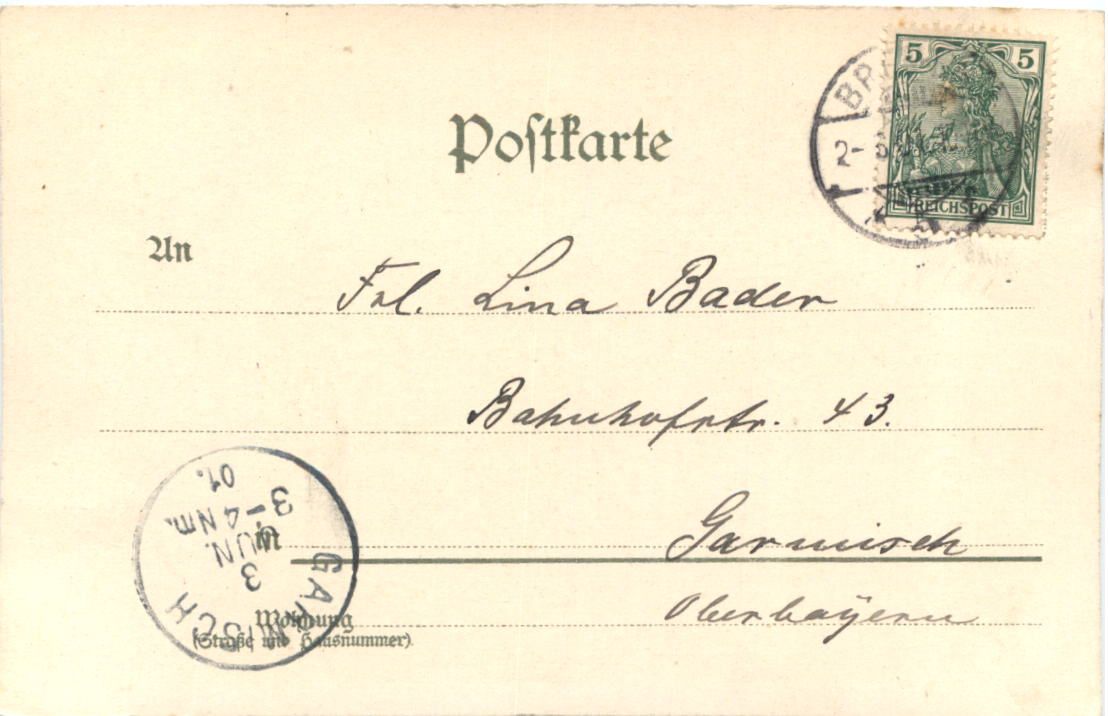 5 5
REICHSPOST
Postkarte
An
Frl. Lina Bader
Bahnhofstr. 43.
in
Garmisch
Oberbayern
Wohnung
(Straße und Hausnummer).
GARMISCH
3 JUN.
3-4 Nm.
01.